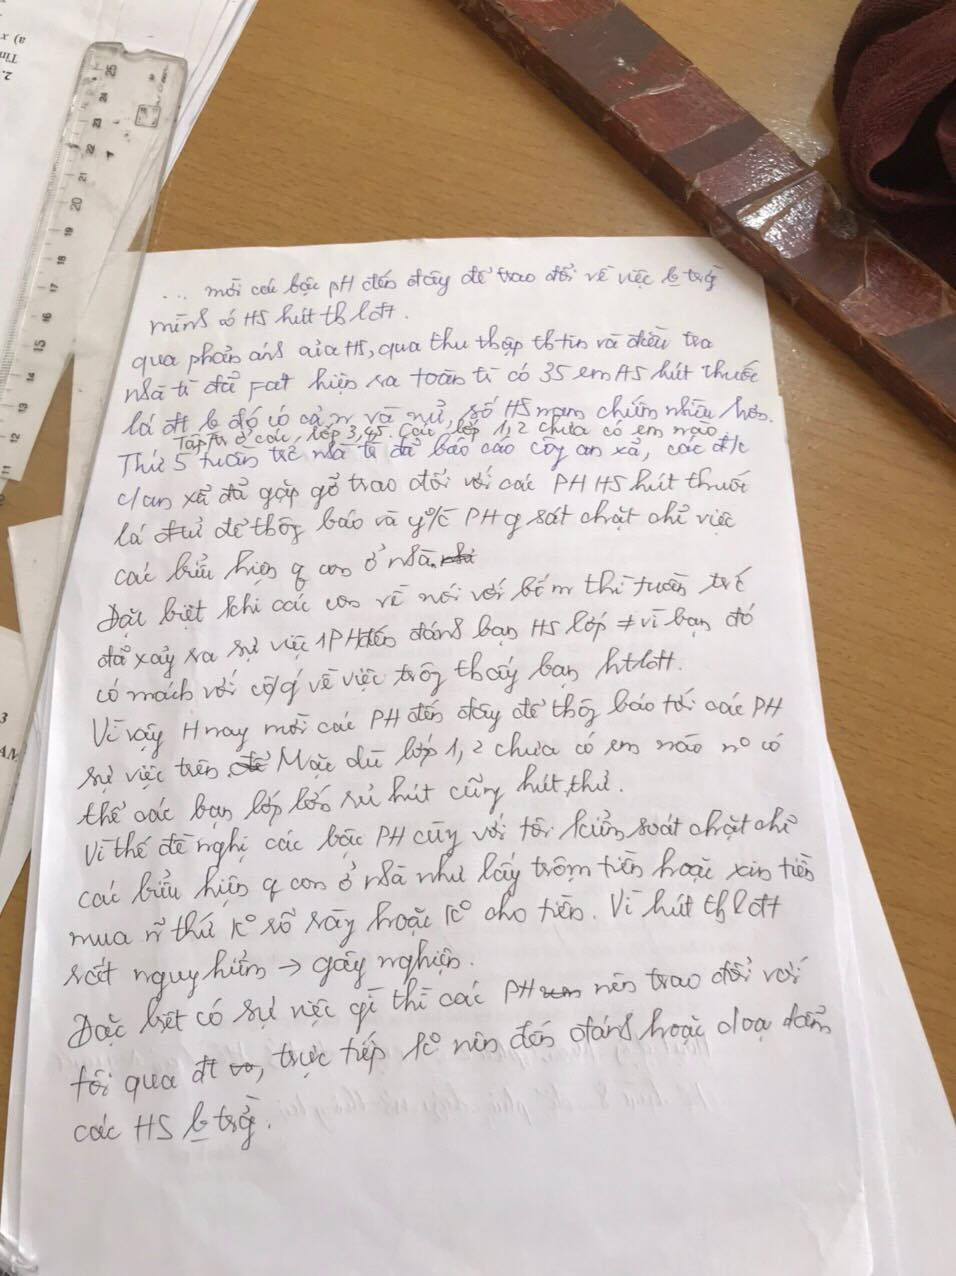 ... mời các bậc PH đến đây để trao đổi về việc tr trg
mình có HS hút th lđt.
qua phản ánh của HS, qua thu thập th tin và điều tra
nhà tr đã fat hiện ra toàn tr có 35 em HS hút thuốc
lá đt tr đó có cả n và nữ, số HS nam chiếm nhiều hơn.
Tập tr ở các lớp 3,4,5. Các lớp 1,2 chưa có em nào
Thứ 5 tuần trc nhà tr đã báo cáo côg an xã, các đ/c
c/an xã đã gặp gỡ trao đổi với các PH HS hút thuốc
lá để thôg báo và y/c PH q sát chặt chẽ việc
các biểu hiện q con ở nhà.
Đặc biệt khi các con về nói với bố m thì tuần trc
đã xảy ra sự việc 1 PH đến đánh bạn HS lớp ≠ vì bạn đó
có mách với cô/g về việc trôg thấy bạn htlđt.
Vì vậy H nay mời các PH đến đây để thôg báo tới các PH
sự việc trên. Mặc dù lớp 1, 2 chưa có em nào n° có
thể các bạn lớp lớn rủ hút cũng hút thử.
Vì thế đề nghị các bậc PH cùg với tôi kiểm soát chặt chẽ
các biểu hiện q con ở nhà như lấy trộm tiền hoặc xin tiền
mua n~ thứ k° rõ ràg hoặc k° cho tiền. Vì hút th lđt
rất nguy hiểm → gây nghiện.
Đặc biệt có sự việc gì thì các PH nên trao đổi với
tôi qua đt, trực tiếp k° nên đến đánh hoặc doạ dẫm
các HS tr trg.